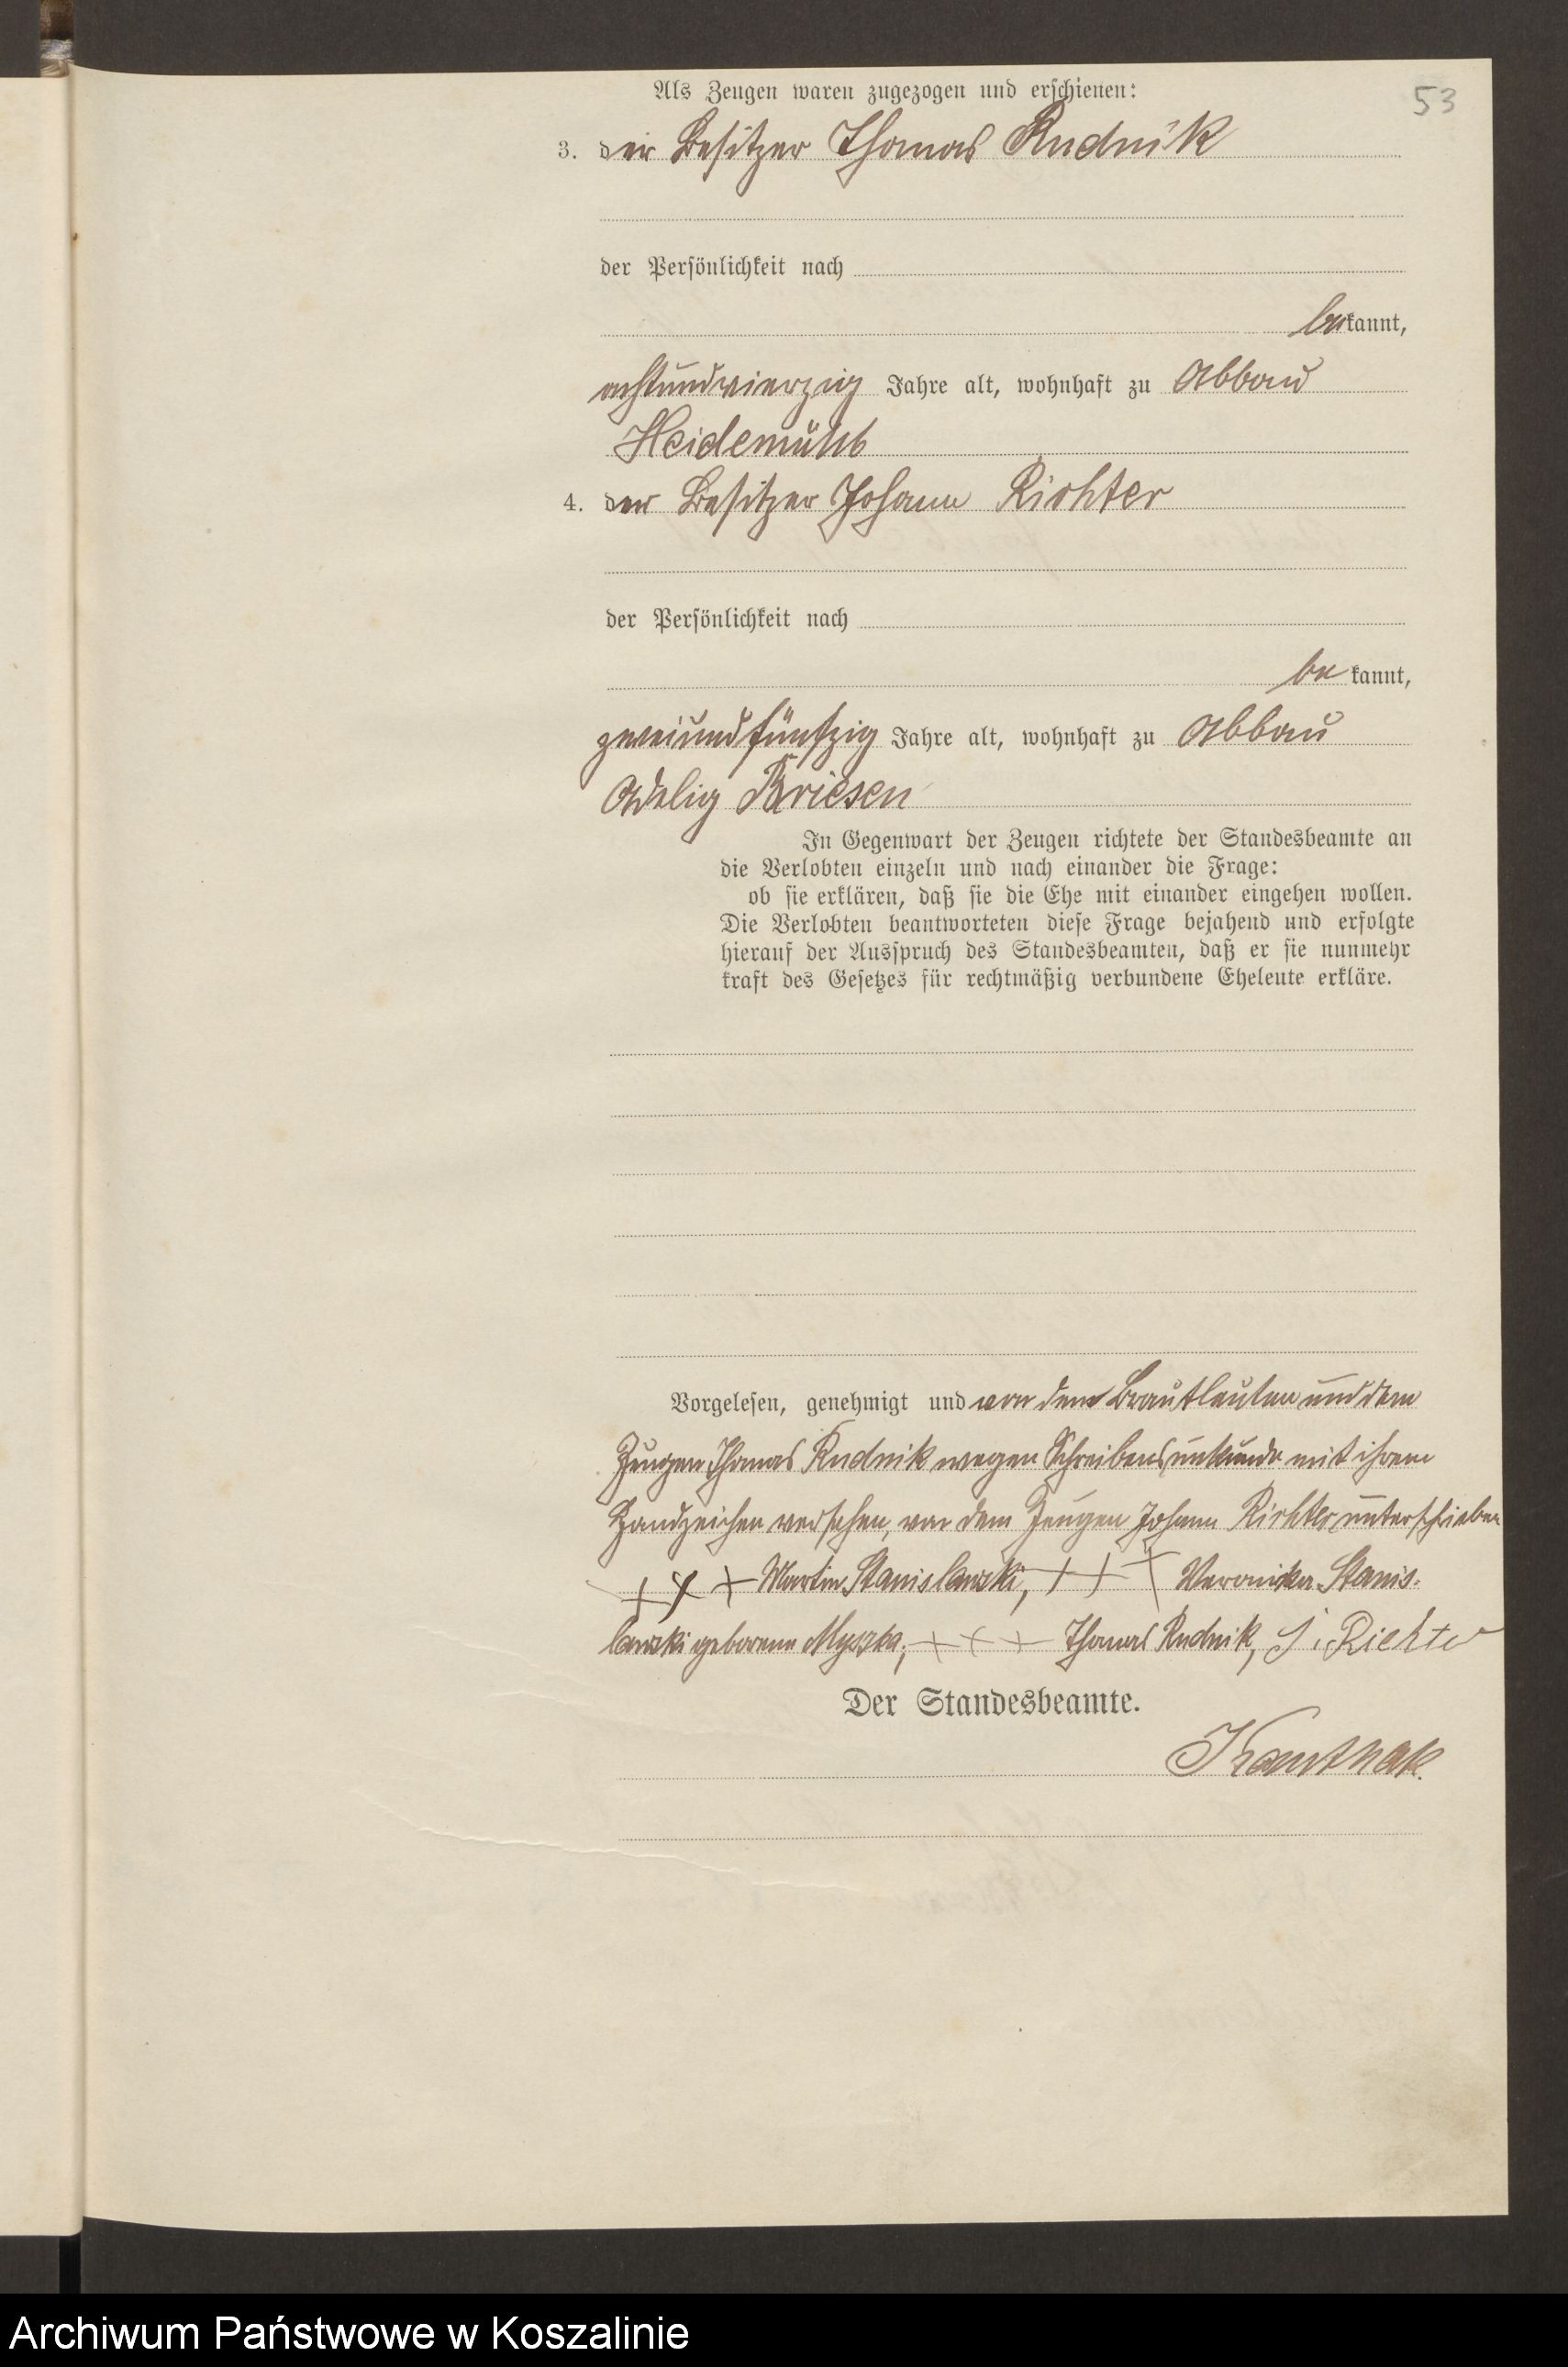 Als Zeugen waren zugezogen und erschienen:
53
3. der Besitzer Thomas Rudnik
der Persönlichkeit nach
bekannt,
achtundvierzig Jahre alt, wohnhaft zu Abbau
Heidemühl
4. der Besitzer Johann Richter
der Persönlichkeit nach
be kannt,
zweiundfünfzig Jahre alt, wohnhaft zu Abbau
Adelig Briesen
In Gegenwart der Zeugen richtete der Standesbeamte an
die Verlobten einzeln und nach einander die Frage:
ob sie erklären, daß sie die Ehe mit einander eingehen wollen.
Die Verlobten beantworteten diese Frage bejahend und erfolgte
hierauf der Ausspruch des Standesbeamten, daß er sie nunmehr
kraft des Gesetzes für rechtmäßig verbundene Eheleute erkläre.
Vorgelesen, genehmigt und von den Brautleuten und dem
Zeugen Thomas Rudnik wegen Schreibensunkunde mit ihrem
Handzeichen versehen, von dem Zeugen Johann Richter unterschrieben
+ + + Martin Stanislawski, + + + Veronika Stanis-
lawski geborene Myszka, + + + Thomas Rudnik, J. Richter
Der Standesbeamte.
Kanthak.
Archiwum Państwowe w Koszalinie